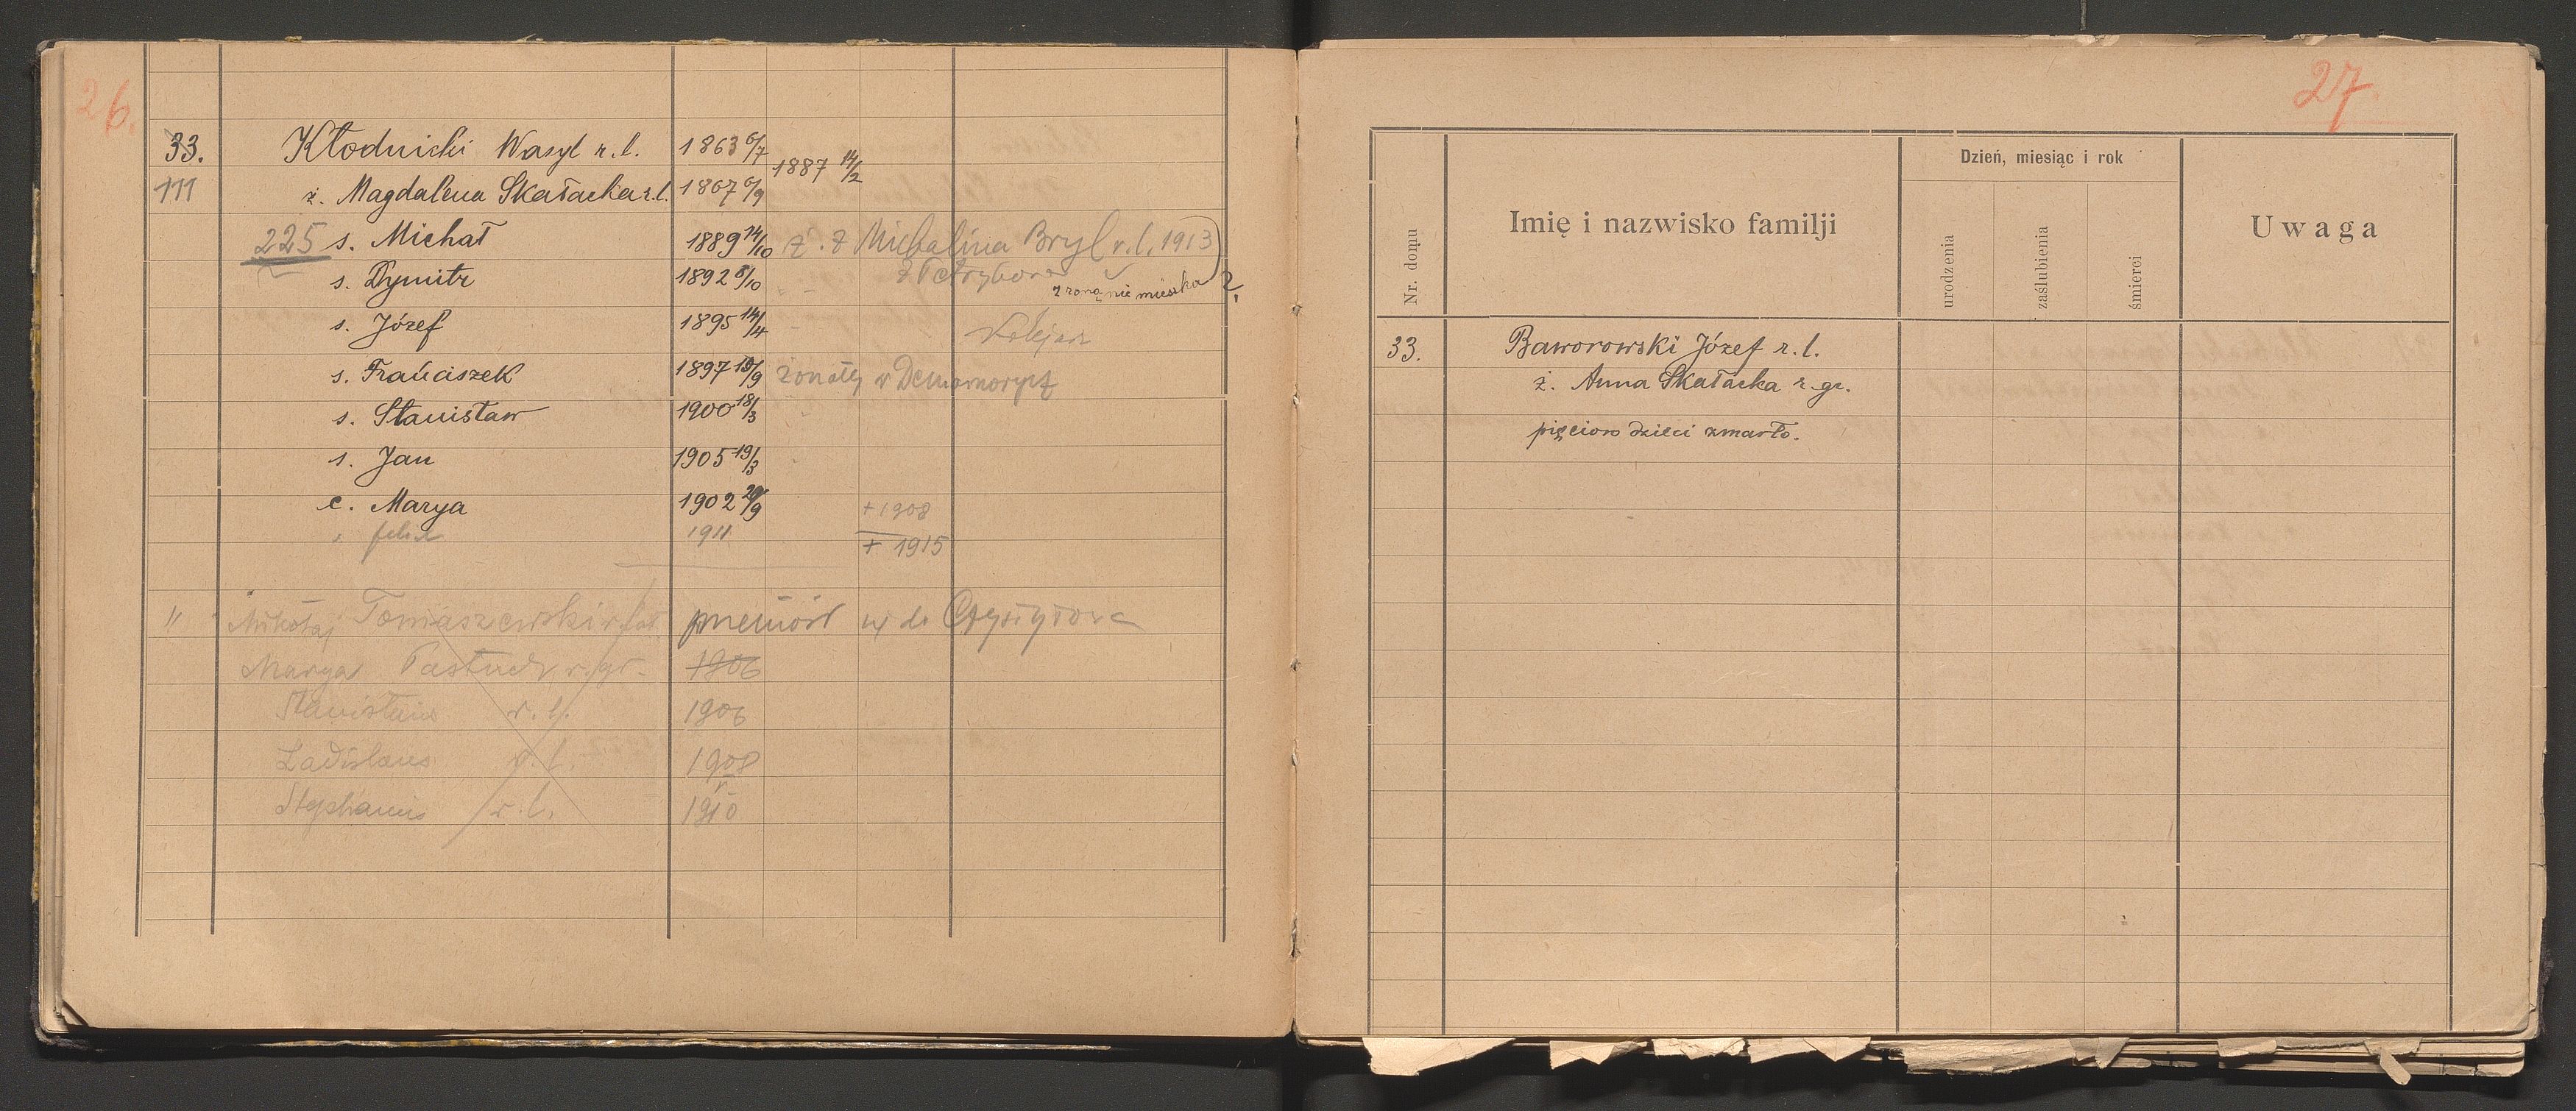 26.
33. Kłodnicki Wasyl r. l. 1863 6/7 1887 14/2
111 ż. Magdalena Skałacka r. l. 1867 6/9
225 s. Michał 1889 14/10 ż. z Michalina Bryl r. l. 1913
s. Dymitr 1892 8/10 z żoną nie mieszka
s. Józef 1895 14/4
s. Franciszek 1897 10/9 żonaty w
s. Stanisław 1900 18/3
s. Jan 1905 19/3
c. Marya 1902 20/9 + 1908
" felix 1911 + 1915
" Mikołaj Tomaszewski przeniósł się do
Marya Pastuch r. gr. 1906
Stanislaus r. l. 1906
Ladislaus r. l. 1908
Stephanus r. l. 1910
27
Nr. domu
Imię i nazwisko familji
Dzień, miesiąc i rok
urodzenia
zaślubienia
śmierci
Uwaga
33. Baworowski Józef r. l.
ż. Anna Skałacka r. gr.
pięcioro dzieci zmarło.